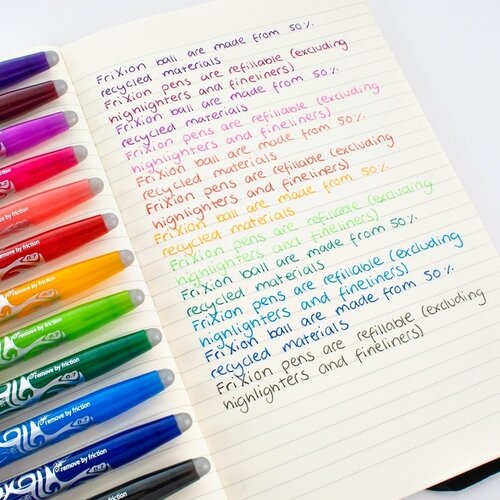 FriXion ball are made from 50%
recycled materials
FriXion pens are refillable (excluding
highlighters and fineliners)
FriXion ball are made from 50%
recycled materials
FriXion pens are refillable (excluding
highlighters and fineliners)
FriXion ball are made from 50%
recycled materials
FriXion pens are refillable (excluding
highlighters and fineliners)
FriXion ball are made from 50%
recycled materials
FriXion pens are refillable (excluding
highlighters and fineliners)
FriXion ball are made from 50%
recycled materials
FriXion pens are refillable (excluding
highlighters and fineliners)
FriXion ball are made from 50%
recycled materials
FriXion pens are refillable (excluding
highlighters and fineliners)
remove by friction
remove by friction
remove by friction
remove by friction
remove by friction
remove by friction
0.7
remove by friction
0.7
remove by friction
0.7